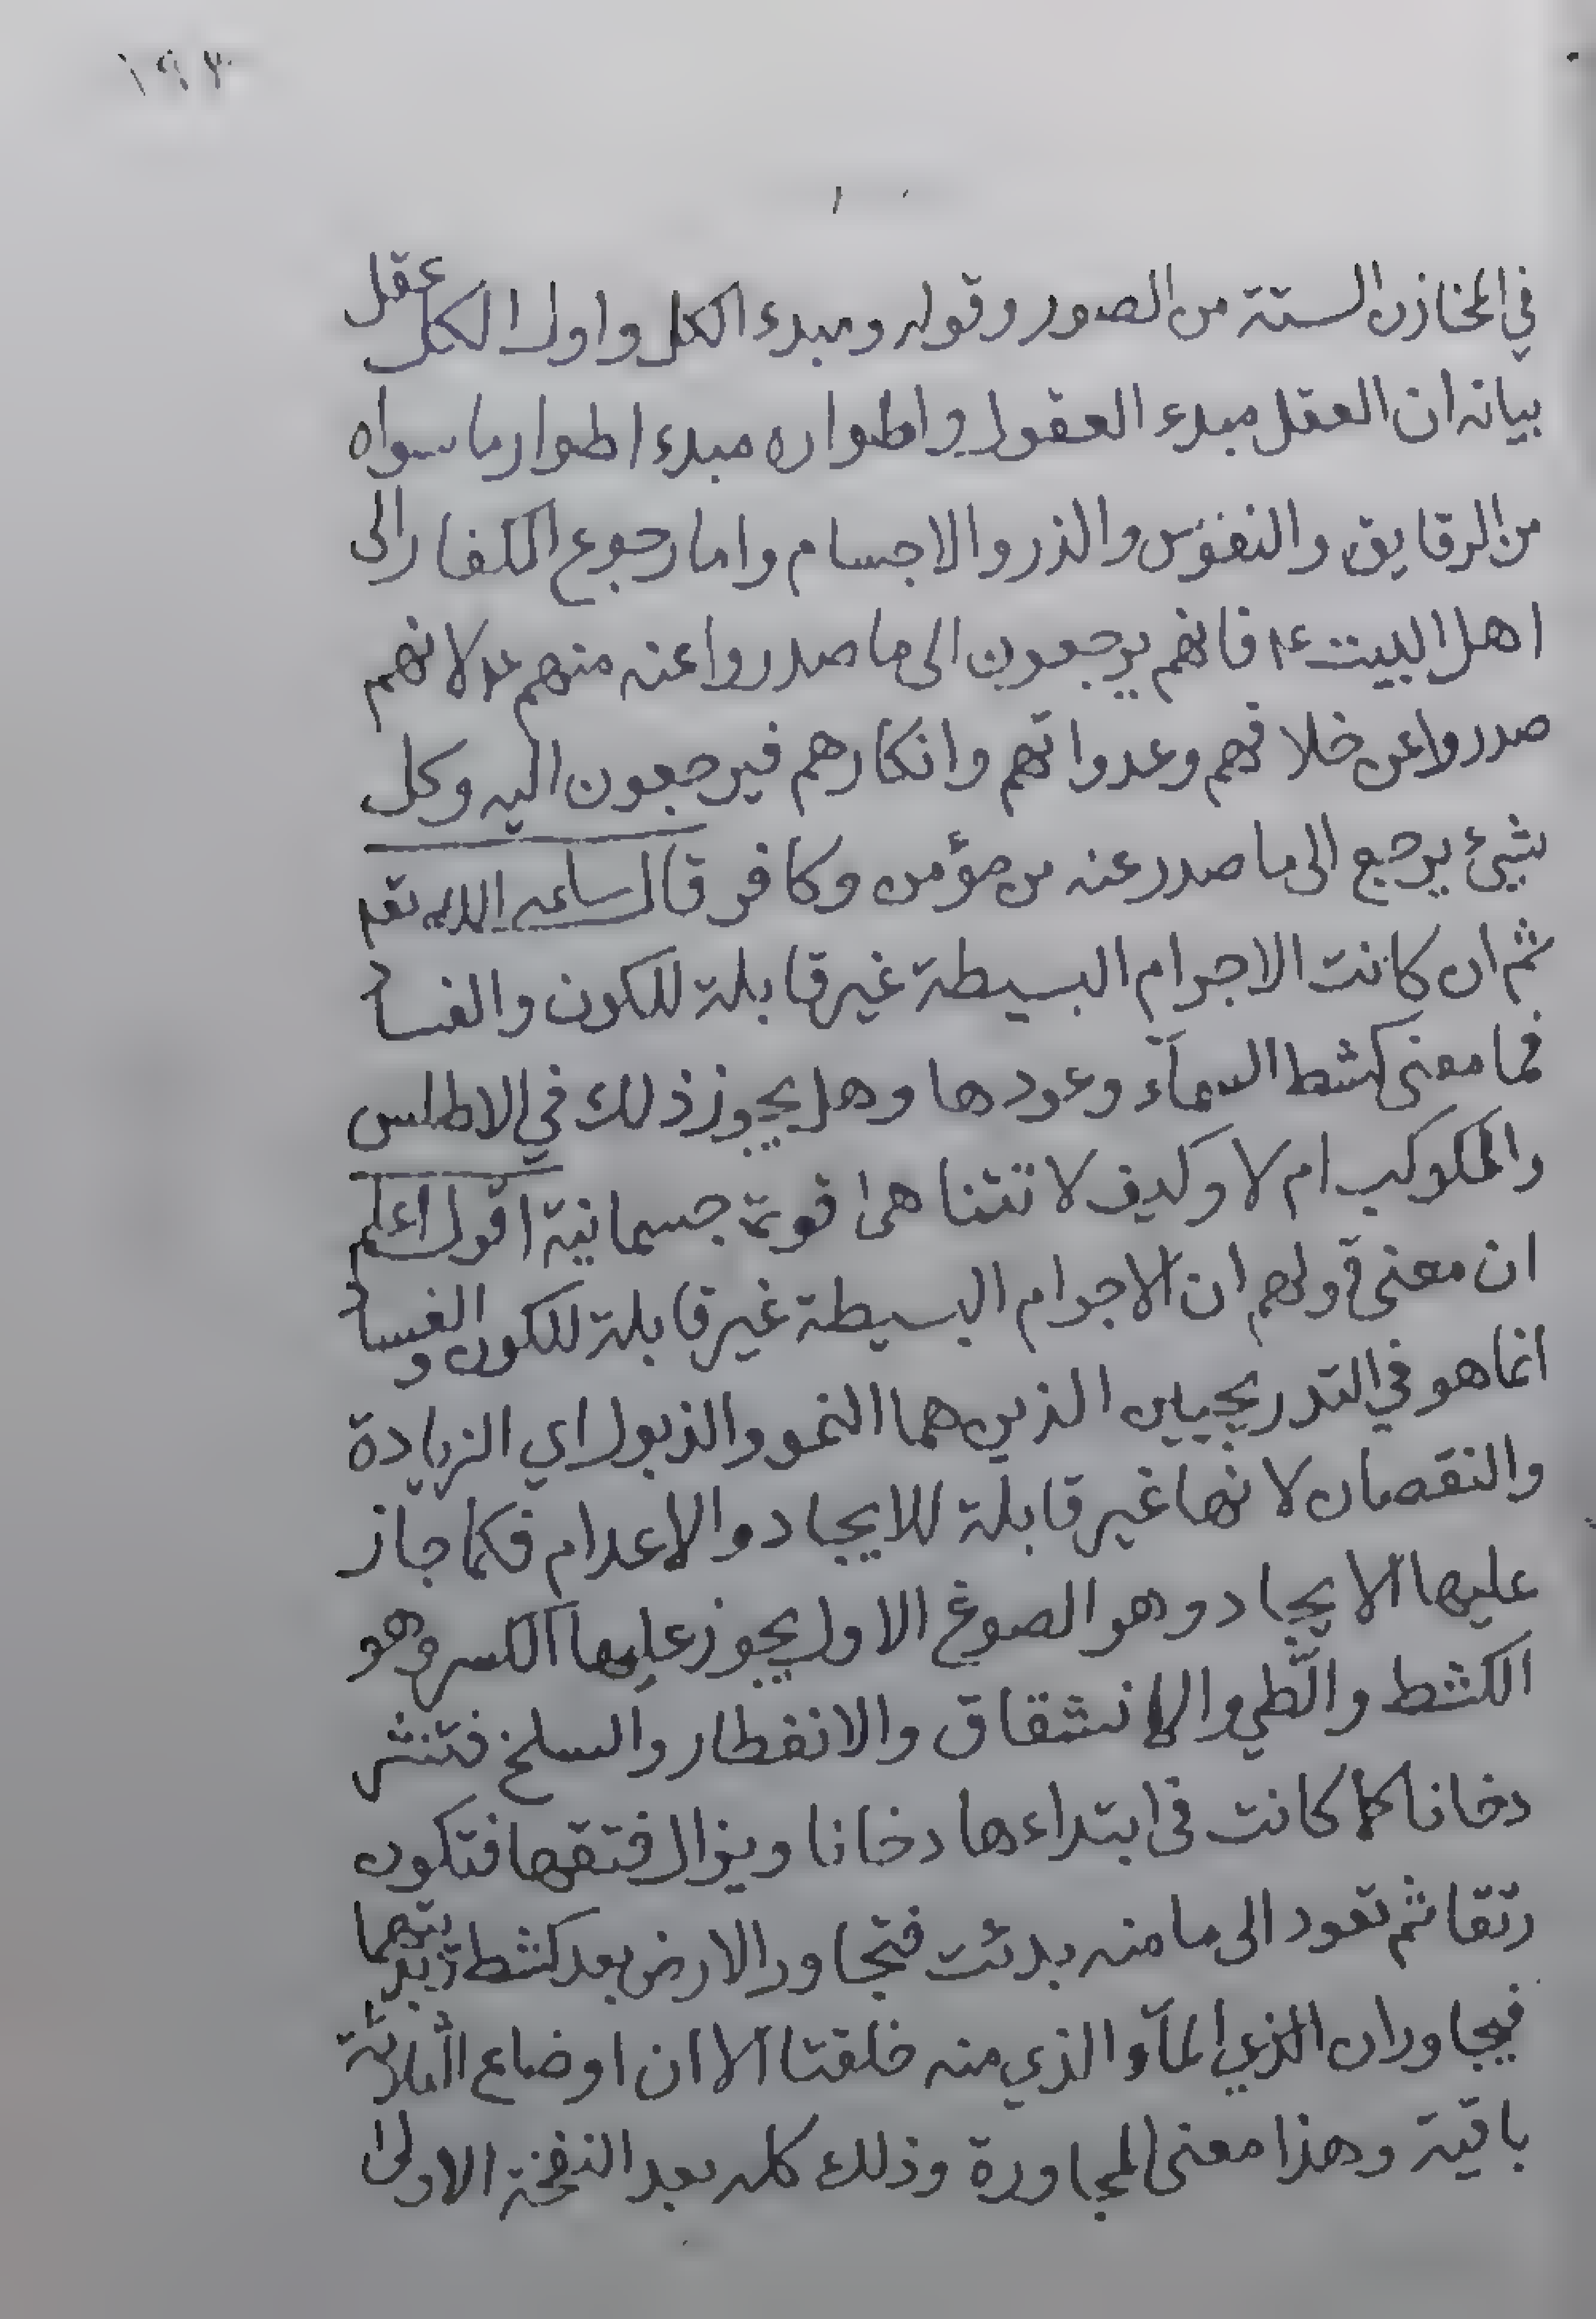 ١٩٣
في المخازن الستة من الصور وقوله ومبدء الكل واول الكل عقل
بيانه ان العقل مبدء العقول واطواره مبدء اطوار ما سواه
من الرقايق والنفوس والذر والاجسام واما رجوع الكفار الى
اهل البيت ع فانهم يرجعون الى ما صدروا عنه منهم ع لانهم
صدروا عن خلافهم وعدواتهم وانكارهم فيرجعون اليه وكل
شيئ يرجع الى ما صدر عنه من مؤمن وكافر قال الله تع
ثم ان كانت الاجرام البسيطة غير قابلة للكون والفساد
فما معنى كشط السمآء وعودها وهل يجوز ذلك في الاطلس
والمكوكب ام لا وكيف لا تتناهى قوة جسمانية اقول اعلم
ان معنى قولهم ان الاجرام البسيطة غير قابلة للكون والفساد
انما هو في التدريجيين الذين هما النمو والذبول اي الزيادة
والنقصان لا نها غير قابلة للايجاد والاعدام فكما جاز
عليها الايجاد وهو الصوغ الاول يجوز عليها الكسر وهو
الكشط والطي والانشقاق والانفطار والسلخ فتنشر
دخانا كما كانت في ابتداءها دخانا ويزال فتقها فتكون
رتقا ثم تعود الى ما منه بدئت فتجاور الارض بعد كشط
فيجاوران الذي المآء الذي منه خلقتا الا ان اوضاع الثلاثة
باقية وهذا معنى المجاورة وذلك كله بعد النفخة الاولى